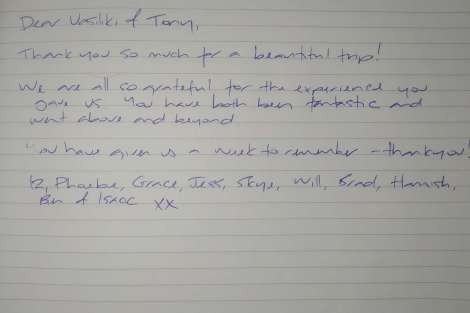 Dear Vasiliki & Tony,
Thank you so much for a beautiful trip!
We are all so grateful for the experience you
gave us. You have both been fantastic and
went above and beyond
You have given us a week to remember - thankyou!
Phoebe, Grace, Jess, Skye, Will, Brad, Hamish,
Ben & Isaac xx